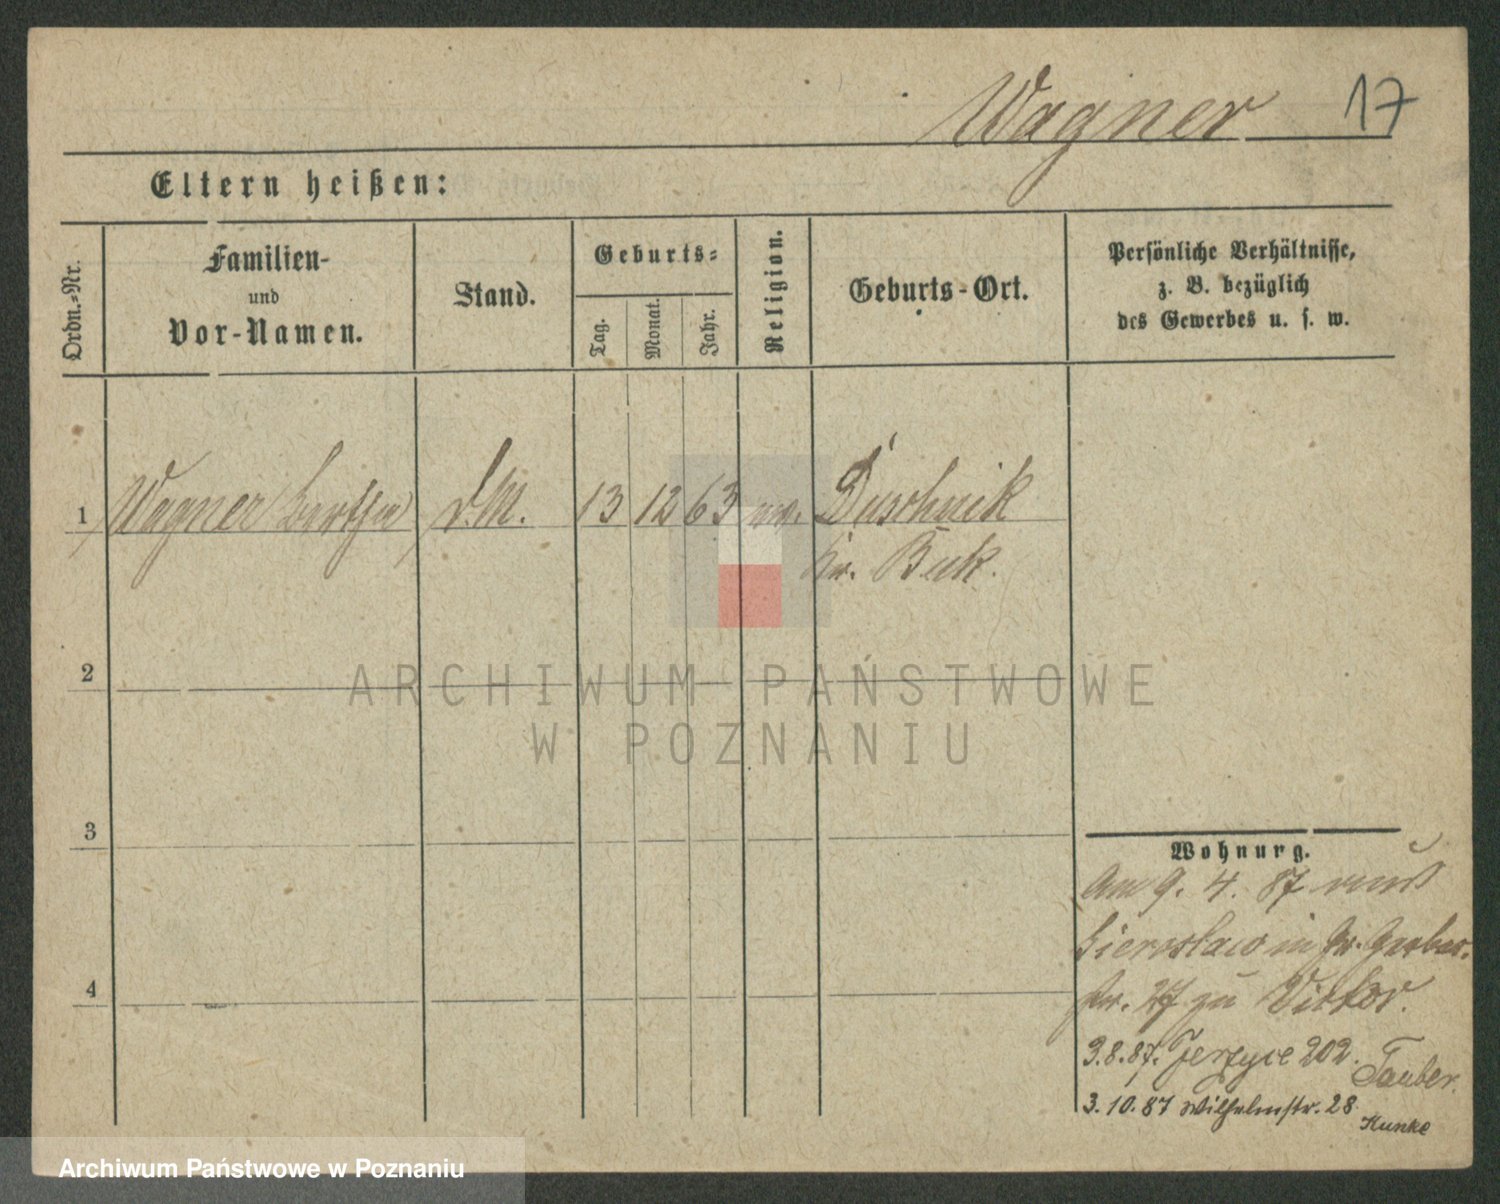 Wagner 17
Eltern heißen:
Ordn.=Nr.
Familien-
und
Vor-Namen.
Stand.
Geburts=
Tag.
Monat.
Jahr.
Religion.
Geburts-Ort.
Persönliche Verhältnisse,
z. B. bezüglich
des Gewerbes u. s. w.
1 Wagner Bertha d. M. 13 12 63 ev. Duschnik
Kr. Buk.
2
ARCHIWUM PAŃSTWOWE
W POZNANIU
3
4
Wohnung.
Am 9. 4. 87 aus
Sieroslaw in Gr. Gerber-
str. 27 zu Victor.
3.8.87. Jerzyce 202.
Tauber.
3.10.87 Wilhelmstr. 28
Kunke
Archiwum Państwowe w Poznaniu